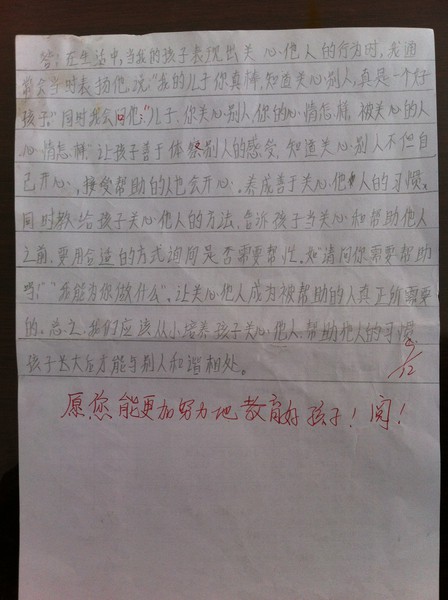 答：在生活中，当我的孩子表现出关心他人的行为时，我通
常会当时表扬他，说“我的儿子你真棒，知道关心别人，真是一个好
孩子。”同时我会问他：“儿子，你关心别人，你的心情怎样，被关心的人
心情怎样”让孩子善于体察别人的感受，知道关心别人不但自
己开心，接受帮助的人也会开心。养成善于关心他人的习惯，
同时教给孩子关心他人的方法、告诉孩子当关心和帮助他人
之前，要用合适的方式询问是否需要帮忙。如“请问你需要帮助
吗？”“我能为你做什么”。让关心他人成为被帮助的人真正所需要
的。总之，我们应该从小培养孩子关心他人、帮助他人的习惯，
孩子长大后才能与别人和谐相处。
愿您能更加努力地教育好孩子！阅！